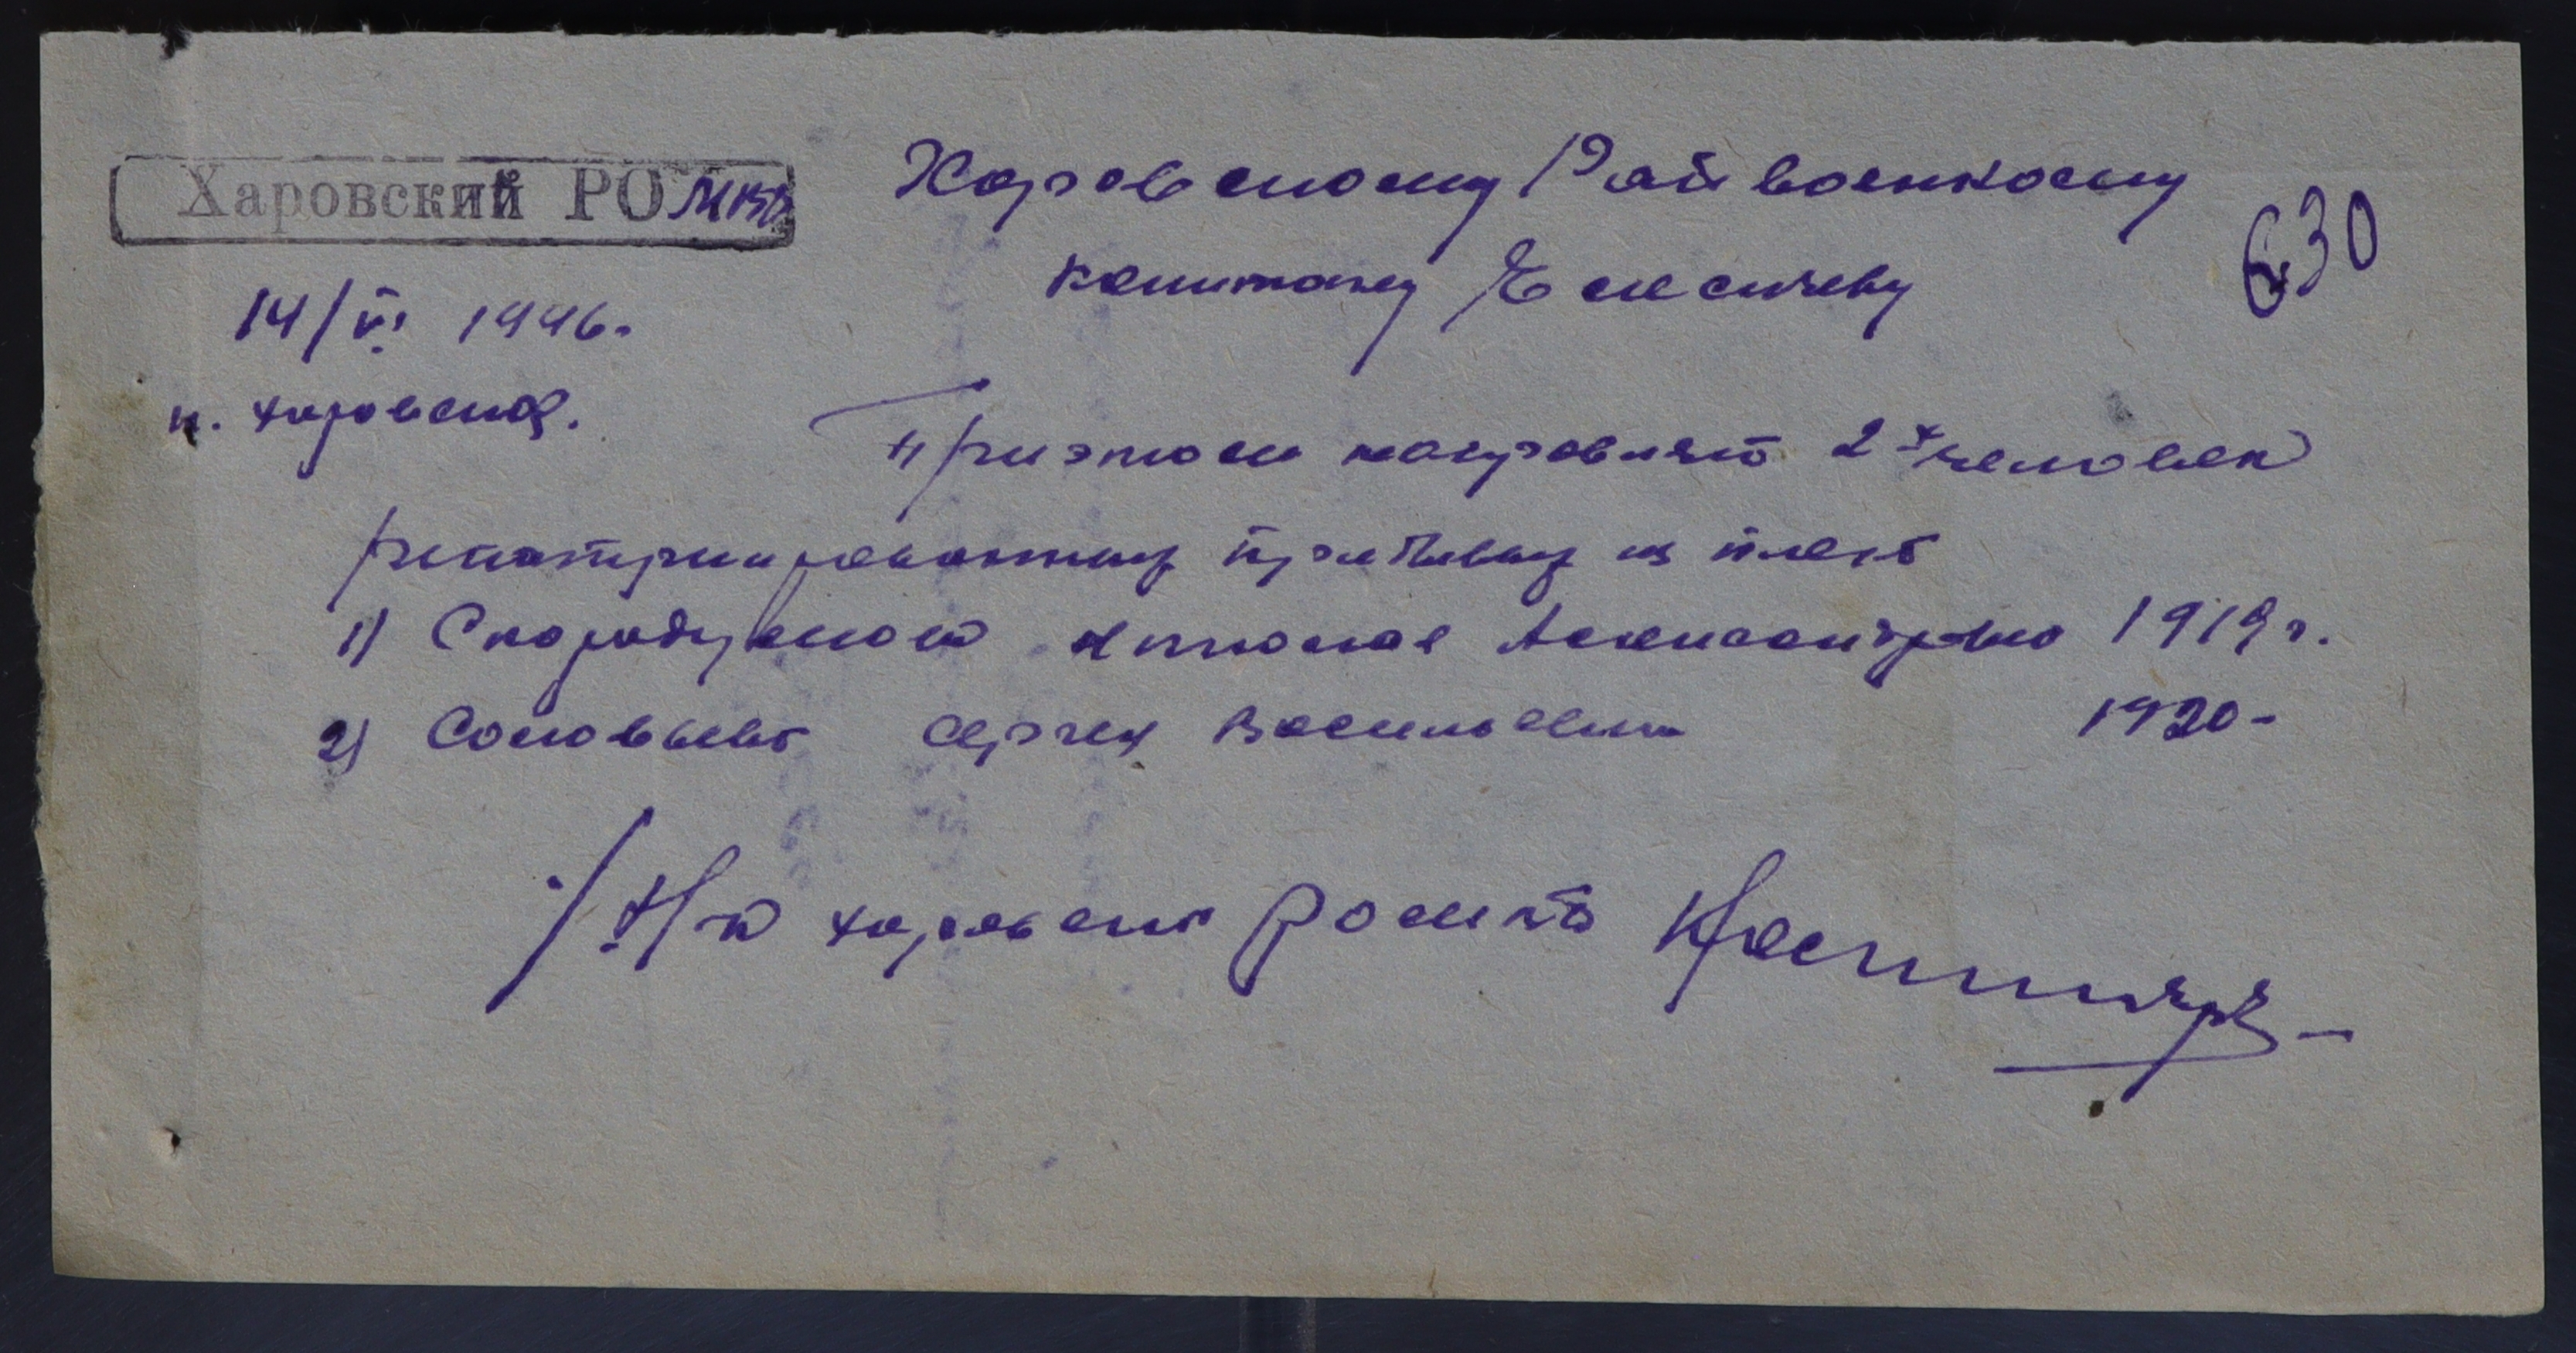 Харовский РО МВД
Харовскому Райвоенкому
капитану
630
14/VI 1946.
п. Харовск.
При этом направляют 2х человек
репатриированных прибывших из плена
1) Скородумова Николая Александровича 1919 г.
2) Соловьева Сергея Васильевича 1920 -
Н/к Харовского РО МВД